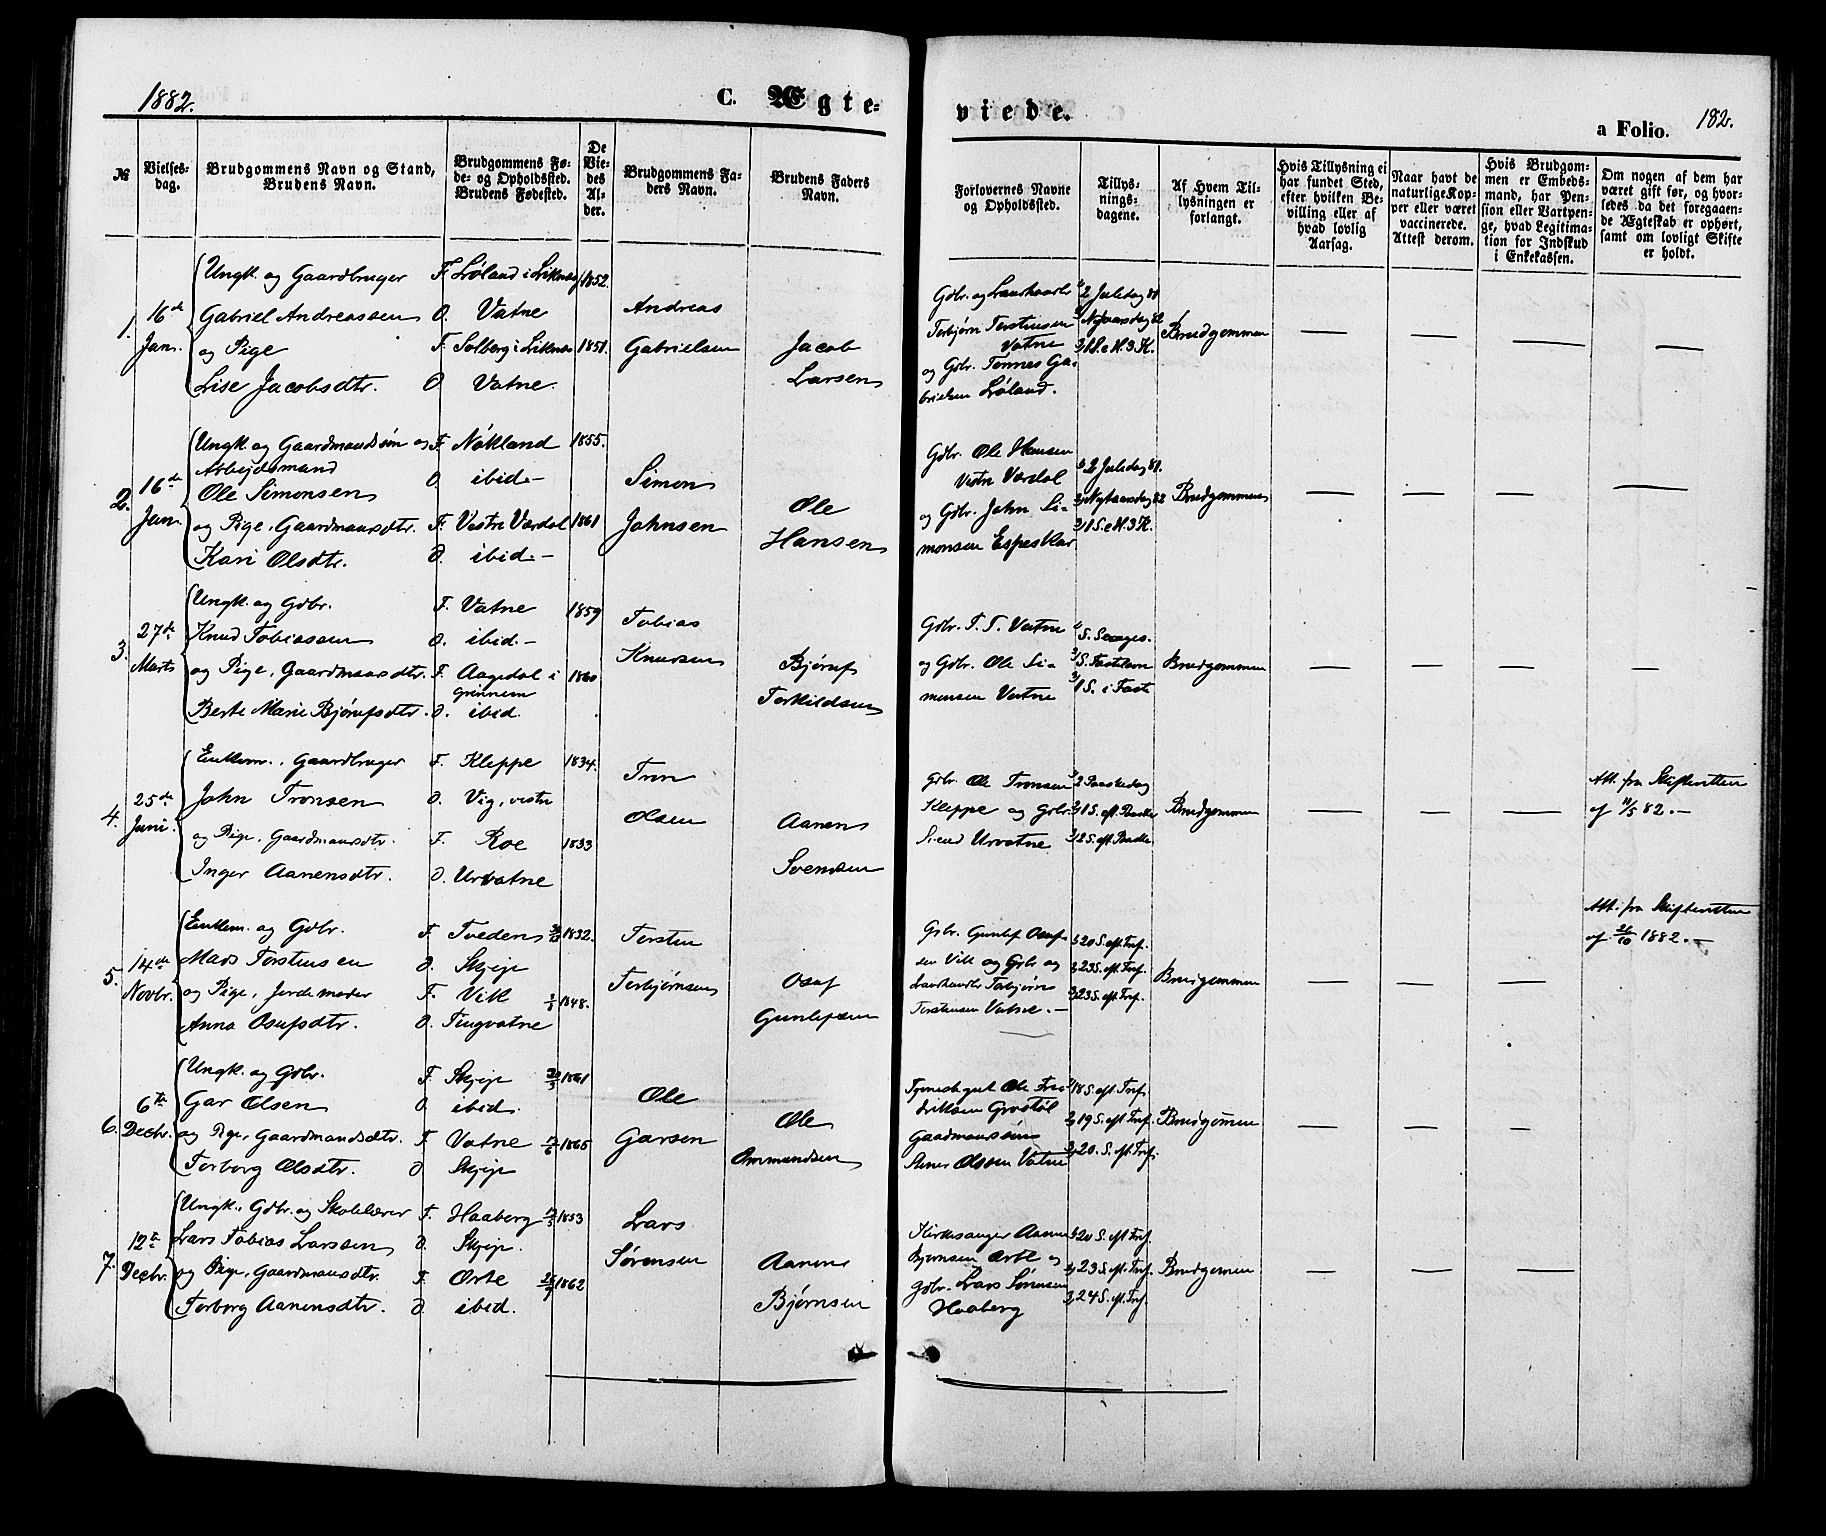 1882.
C. Ægte-
viede.
a Folio.
182.
№
Vielses-
dag.
Brudgommens Navn og Stand,
Brudens Navn.
Brudgommens Fø-
de- og Opholdssted.
Brudens Fødested.
De
Vie-
des
Al-
der.
Brudgommens Fa-
ders Navn.
Brudens Faders
Navn.
Forlovernes Navne
og Opholdssted.
Tillys-
nings-
dagene.
Af Hvem Til-
lysningen er
forlangt.
Hvis Tillysning ei
har fundet Sted,
efter hvilken Be-
villing eller af
hvad lovlig
Aarsag.
Naar havt de
naturlige Kop-
per eller været
vaccinerede.
Attest derom.
Hvis Brudgom-
men er Embeds-
mand, har Pen-
sion eller Vartpen-
ge, hvad Legitima-
tion for Indskud
i Enkekassen.
Om nogen af dem har
været gift før, og hvor-
ledes da det foregaaen-
de Ægteskab er ophørt,
samt om lovligt Skifte
er holdt.
1.
16de
Jan.
Ungk. og Gaardbruger
Gabriel Andreassen
og Pige
Lise Jacobsdtr.
F. Løland i Liknes
O. Vatne
F. Solberg i Liknes
O Vatne.
1852.
1851.
Andreas
Gabrielsen
Jacob
Larsen
Gdbr. og Lænsmand
Torbjørn Terstensen
Vatne
og Gdbr. Tønnes Ga-
brielsen Løland.
1/ 2 Juledag 81
2/ Nytaarsdag 82
3/ 1 S. e. H. 3 K.
Brudgommen
2.
16de
Jan.
Ungk. og Gaardmandssøn og
Arbejdsmand
Ole Simonsen
og Pige, Gaardmansdtr.
Kari Olsdtr.
F. Nökland
O. ibid. -
F. Vestre Værdal
O. ibid. -
1855.
1861
Simon
Johnsen
Ole
Hansen
Gdbr. Ole Hansen
Vestre Værdal
og Gdbr. John Si-
monsen Espeskar
1/ 2 Juledag 81.
2/ Nytaarsdag 82
3/ 1 S. e. H. 3 K.
Brudgommen
3.
27de
Marts
Ungk. og Gdbr.
Knud Tobiassen
og Pige, Gaardmansdtr.
Berte Marie Bjørufsdtr.
F. Vatne
O. ibid -
F. Aagedal i
Grinnem
O. ibid.
1859
1860
Tobias
Knudsen
Bjøruf
Torkildsen
Gdbr. T. T. Vatne
og Gdbr. Ole Si-
monsen Vatne
2/ S. Fastelavn
3/ 1 S. i Faste
Brudgommen
4.
25de
Juni
Enkem., Gaardbruger
John Tronsen
og Pige, Gaardmansdtr.
Inger Aanensdtr.
F. Kleppe
O. Vig, vestre
F. Roe
O. Urvatne
1834.
1833
Tron
Olsen
Aanen
Svendsen
Gdbr. Ole Tronsen
Kleppe og Gdbr.
Svend Urvatne
1/ 2 Paaskedag
2/ 1 S. eft. Paaske
3/ 2 S. eft. Paaske
Brudgommen
Att. fra Skifteretten
af 11/5 82. -
5.
14de
Novbr.
Enkem. og Gdbr.
Mads Torstensen
og Pige, Jordemoder
Anna Osufsdtr.
F. Tveden
O. Skjeje
F. Vik
O. Tingvatne
1832.
1848.
Torsten
Torbjørnsen
Osuf
Gunlefsen
Gdbr. Gunlef Osuf-
sen Vik og Gdbr og
Torbjørn
Terstensen Vatne. -
1/ 20 S. eft. Tref.
2/ 23 S. eft. Tref.
3/ 23 S. eft. Tref.
Brudgommen
Att. fra Skifteretten
af 26/10 1882. -
6.
6te
Decbr.
Ungk. og Gdbr.
Gar Olsen
og Pige, Gaardmandsdtr.
Torborg Olsdtr.
F. Skjeje
O. ibid.
F. Vatne
O Skjeje
1861
1865
Ole
Garsen
Ole
Ommundsen
Ole Fre-
driksen Grostøl
Gaardmanssøn
Stener Olssen Vatne
1/ 18 S. eft. Tref.
2/ 19 S. eft. Tref.
3/ 20. S. eft. Tref.
Brudgommen
7.
12te
Decbr.
Ungk., Gdbr. og Skolelærer
Lars Tobias Larssen
og Pige, Gaardmansdtr.
Torborg Aanensdtr.
F. Haaberg
O. Skjeje.
F. Ørte
O ibid.
1853
1862
Lars
Sørensen
Aanen
Bjørnsen
Kirkesanger Aanen
Bjørnsen Ørte og
Gdbr. Lars Sørensen
Haaberg
1/ 20 S. eft Tref.
2/ 23 S. eft. Tref.
3/ 24 S. eft. Tref.
Brudgommen